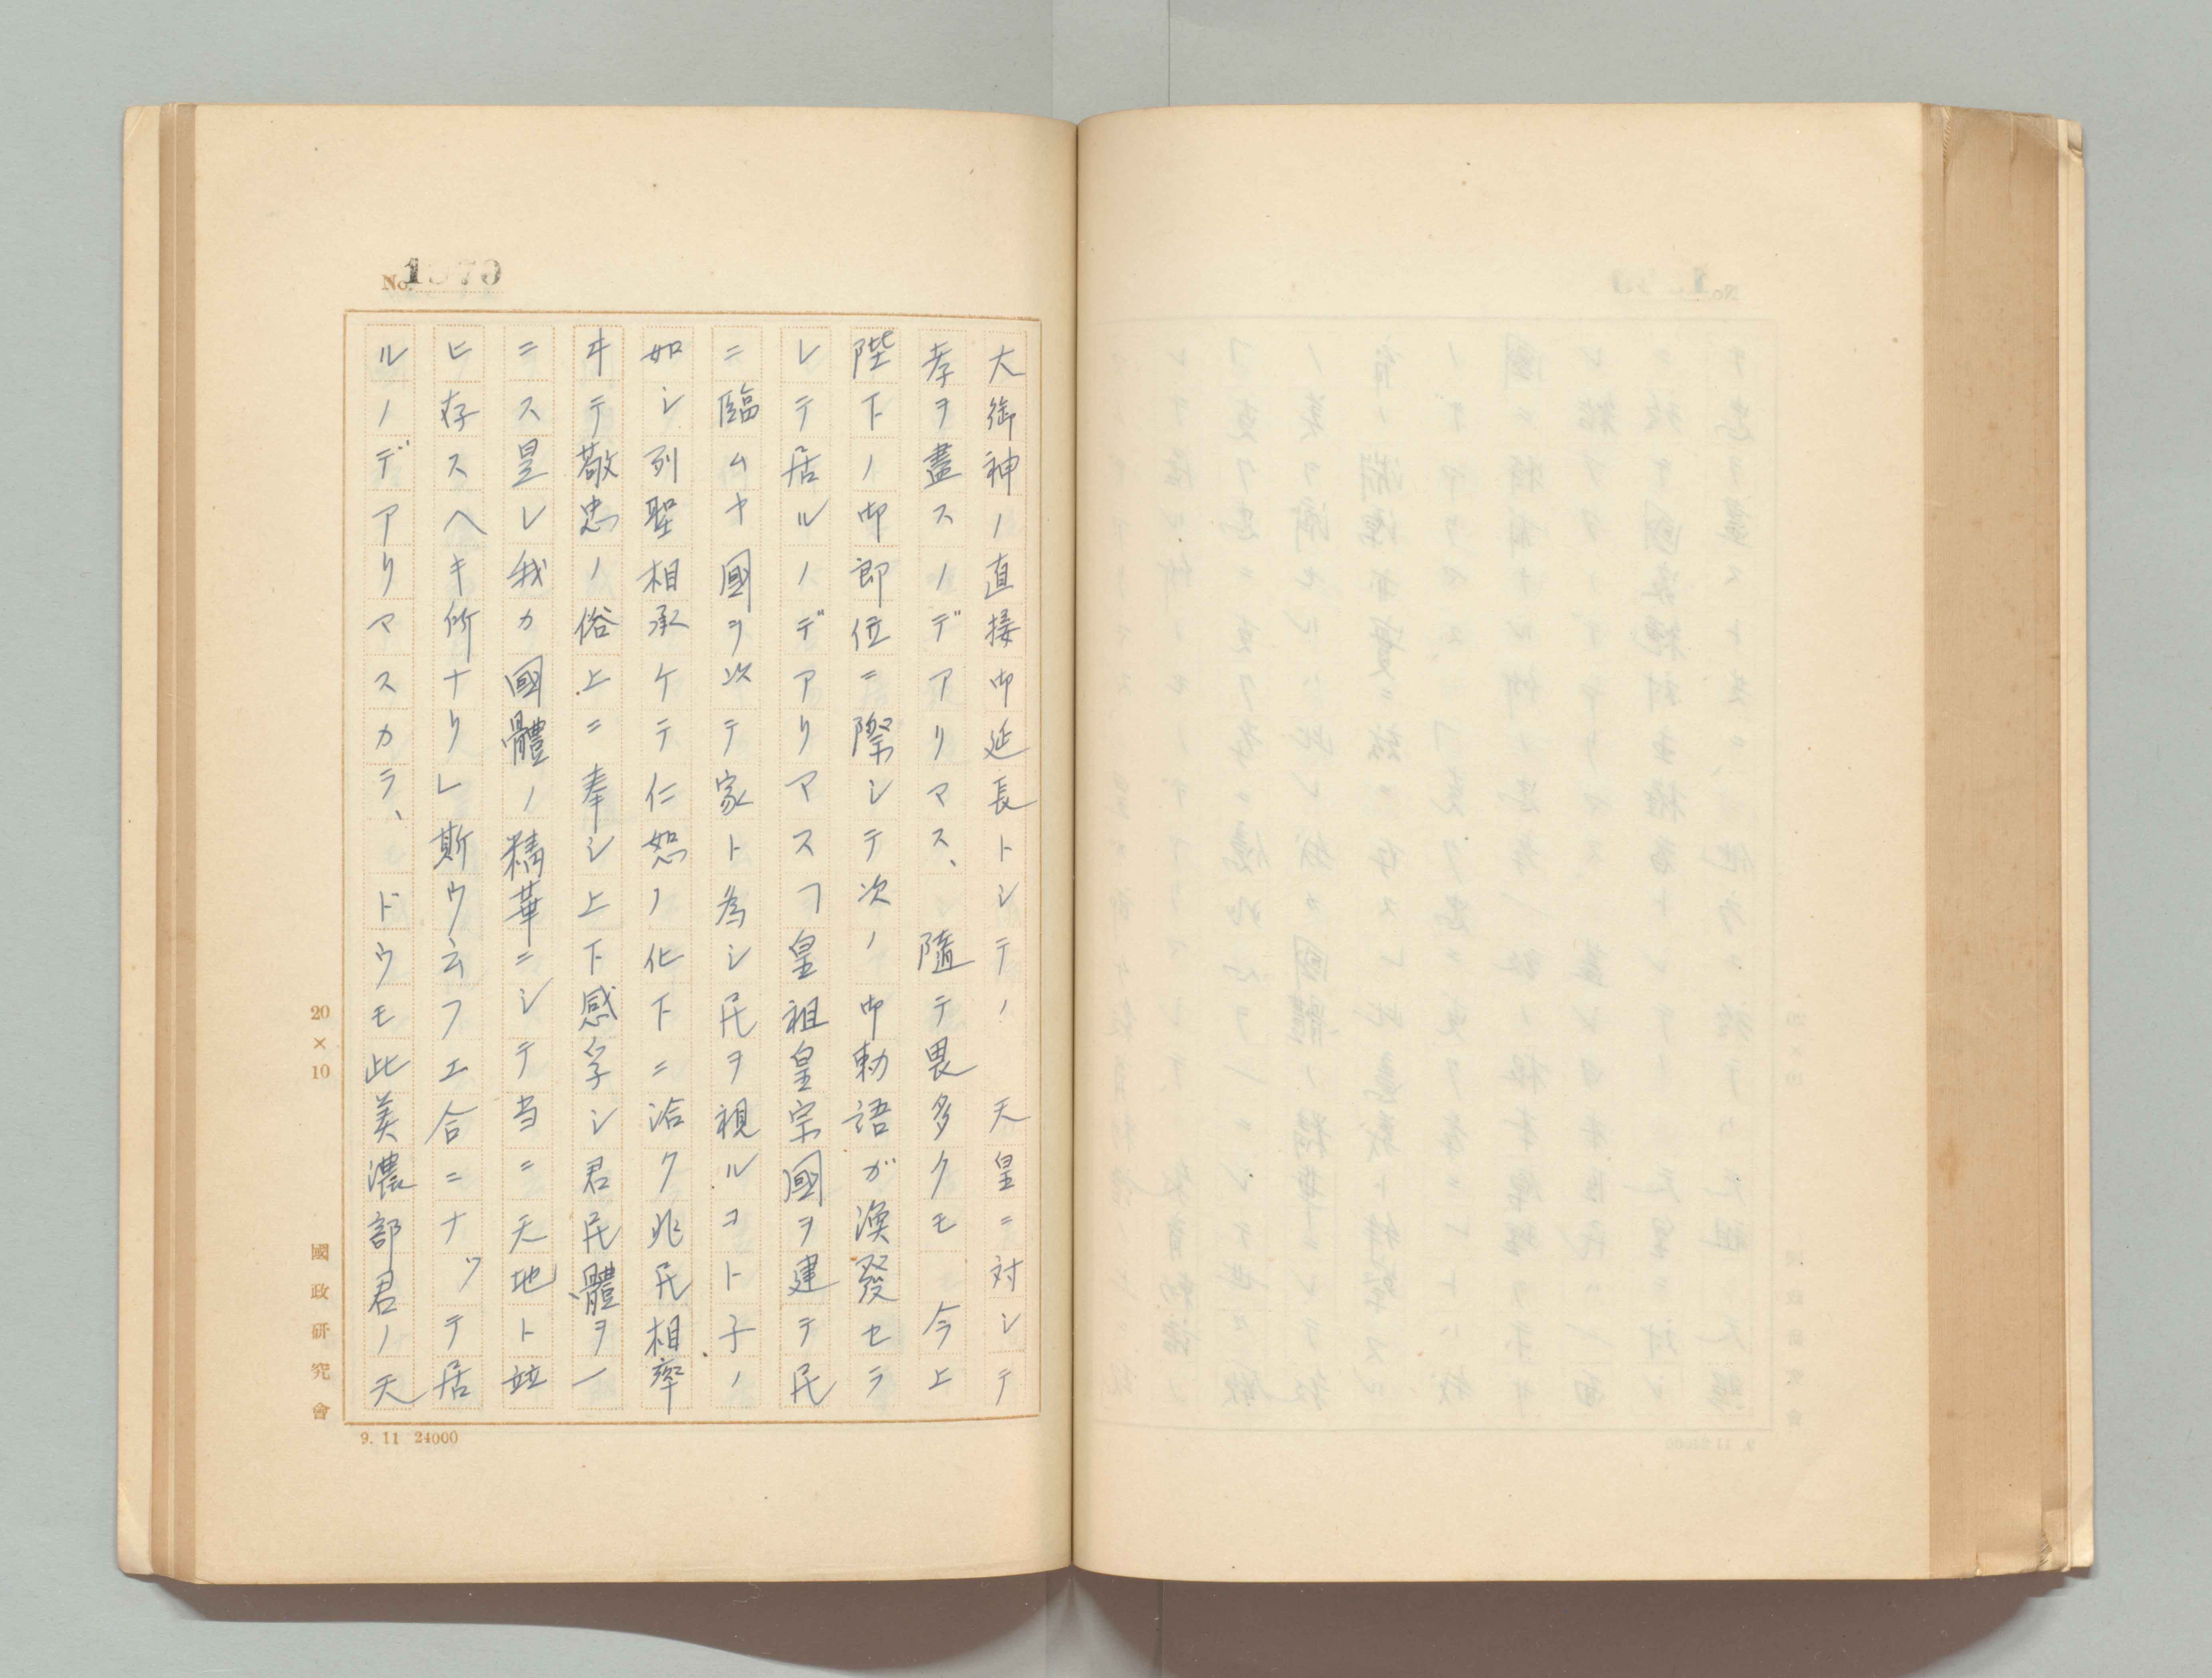 大御神ノ直接御延長トシテノ 天皇ニ対シテ
孝ヲ盡スノデアリマス、隨テ畏多クモ 今上
陛下ノ御即位ニ際シテ次ノ御勅語ガ渙發セラ
レテ居ルノデアリマス「皇祖皇宗國ヲ建テ民
ニ臨ムヤ國ヲ以テ家ト為シ民ヲ視ルコト子ノ
如シ列聖相承ケテ仁恕ノ化下ニ洽ク兆民相率
ヰテ敬忠ノ俗上ニ奉シ上下感孚シ君民體ヲ一
ニス是レ我カ國體ノ精華ニシテ当ニ天地ト竝
ヒ存スヘキ所ナリ」斯ウ云フエ合ニナッテ居
ルノデアリマスカラ、ドウモ此美濃部君ノ天
20×10
國政研究會
9. 11 24000